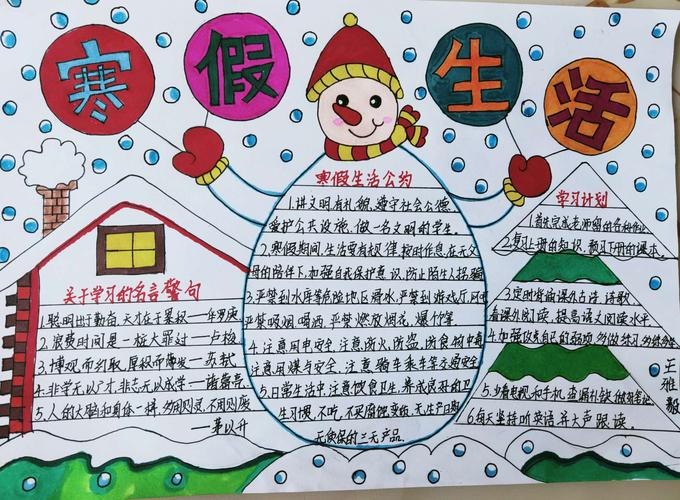 寒假生活
寒假生活公约
1.讲文明有礼貌,遵守社会公德
爱护公共设施,做一名文明的学生。
2.寒假期间,生活要有规律,按时作息,在无父
母的陪伴下,加强自我保护意识,防止陌生人拐骗
3.严禁到水库等危险地区滑冰,严禁到游戏厅网吧
严禁吸烟,喝酒,严禁燃放烟花,爆竹等.
4.注意用电安全,注意防火,防盗,防食物中毒
注意用煤气安全,注意骑车乘车等交通安全
5.日常生活中,注意饮食卫生,养成良好的卫
生习惯,不吃,不买腐蚀变质,无生产日期
无质保的三无产品.
关于学习的名言警句
1.聪明出于勤奋,天才在于累积——华罗庚
2.浪费时间是一桩大罪过——卢梭
3.博观而约取,厚积而薄发——苏轼
4.非学无以广才,非志无以成学——诸葛亮
5.人的大脑和身体一样,多用则灵,不用则废
——茅以升
学习计划
1.首先完成老师留的各种作业
2.复习上册的知识,预习下册的课本
3.定时背诵课外古诗,诗歌,
看课外阅读,提高语文阅读水平
4.加强攻克自己的弱项,多做练习
5.少看电视和手机,查漏补缺
6.每天坚持听英语并大声跟读.
王雅毅